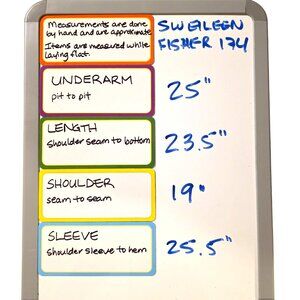 Measurements are done
by hand and are approximate
Items are measured while
laying flat.
SW EILEEN
FISHER 174
UNDERARM
pit to pit
25"
LENGTH
shoulder seam to bottom
23.5"
SHOULDER
seam to seam
19"
SLEEVE
shoulder sleeve to hem
25.5"